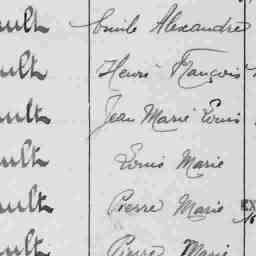 ault Emile Alexandre
ault Henri François
ault Jean Marie Louis
ault Louis Marie
ault Pierre Marie EX
ault Pierre Marie